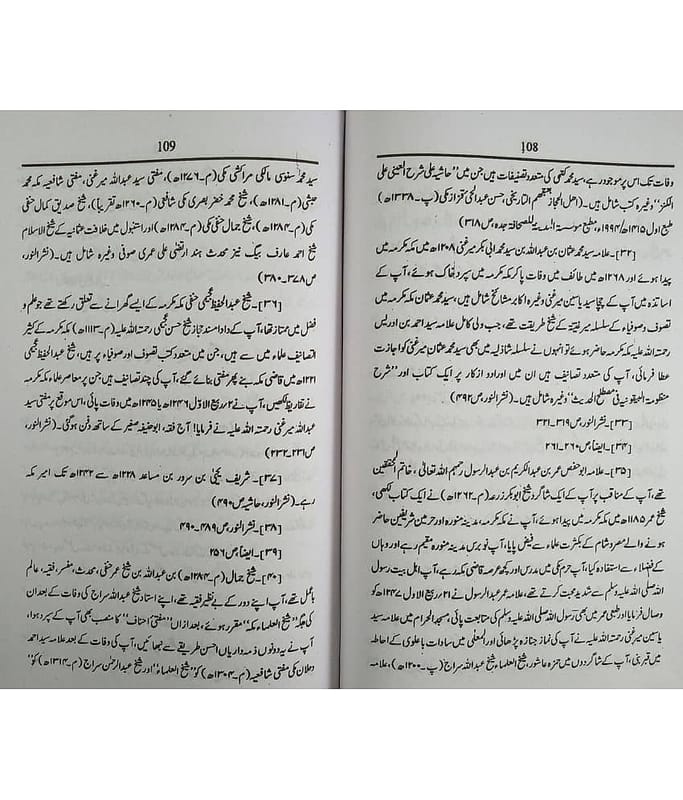 108
وفات تک اس پر موجود رہے، سید محمد کتبی کی متعدد تصنیفات ہیں جن میں "حاشیہ علی شرح العینی علی
الکنز" وغیرہ کتب شامل ہیں۔ (اھل الحجاز بعبقھم التاریخی، حسن عبدالحئی قزاز مکی (پ۔۱۳۳۸ھ)
طبع اول ۱۴۱۵ھ/۱۹۹۴ء، مطبع موسسۃ المدینۃ للصحافۃ جدہ، ص۳۱۸)
[۳۲]۔ علامہ سید محمد عثمان بن عبداللہ بن سید محمد ابی بکر میرغنی ۱۲۰۸ھ میں مکہ مکرمہ میں
پیدا ہوئے اور ۱۲۶۸ھ میں طائف میں وفات پا کر مکہ مکرمہ میں سپرد خاک ہوئے، آپ کے
اساتذہ میں آپ کے چچا سید یاسین میرغنی وغیرہ اکابر مشائخ شامل ہیں، سید محمد عثمان مکہ مکرمہ میں
تصوف و صوفیاء کے سلسلہ میرغنیہ کے شیخ طریقت تھے، جب ولی کامل علامہ سید احمد بن ادریس
رحمۃ اللہ علیہ مکہ مکرمہ حاضر ہوئے تو انہوں نے سلسلہ شاذلیہ میں بھی سید محمد عثمان میرغنی کو اجازت
عطا فرمائی، آپ کی متعدد تصانیف ہیں ان میں اوراد و اذکار پر ایک کتاب اور "شرح
منظومۃ البیقونیۃ فی مصطلح الحدیث" وغیرہ شامل ہیں۔ (نشر النور، ص۴۹۲)
[۳۳]۔ نشر النور، ص۳۱۹۔۳۲۱
[۳۴]۔ ایضاً، ص۲۶۰۔۲۶۱
[۳۵]۔ علامہ ابو حفص عمر بن عبدالکریم بن عبدالرسول رحمہم اللہ تعالیٰ، خاتم المحققین
تھے، آپ کے مناقب پر آپ کے ایک شاگرد شیخ ابوبکر زرعہ (م۔۱۲۶۲ھ) نے ایک کتاب لکھی،
شیخ عمر ۱۱۸۵ھ میں مکہ مکرمہ میں پیدا ہوئے، آپ نے مکہ مکرمہ، مدینہ منورہ اور حرمین شریفین حاضر
ہونے والے مصر و شام کے بکثرت علماء سے فیض پایا، آپ نو برس مدینہ منورہ مقیم رہے اور وہاں
کے فضلاء سے استفادہ کیا، آپ حرم مکی میں مدرس اور کچھ عرصہ قاضی مکہ رہے، آپ اہل بیت رسول
اللہ صلی اللہ علیہ وسلم سے شدید محبت کرتے تھے، علامہ عمر عبدالرسول نے ۲۱ ربیع الاول ۱۲۴۷ھ کو
وصال فرمایا اور طبعی عمر میں بھی رسول اللہ صلی اللہ علیہ وسلم کی متابعت پائی، مسجد الحرام میں علامہ سید
یاسین میرغنی رحمۃ اللہ علیہ نے آپ کی نماز جنازہ پڑھائی اور المعلیٰ میں سادات باعلوی کے احاطہ
میں قبر بنی، آپ کے شاگردوں میں حمزہ عاشور، شیخ العلماء شیخ عبداللہ سراج (پ۔۱۲۰۰ھ)، علامہ
109
سید محمد سنوسی مالکی مراکشی مکی (م۔۱۲۷۶ھ)، مفتی سید عبداللہ میرغنی، مفتی شافعیہ مکہ محمد
حبشی (م۔۱۲۸۱ھ)، شیخ محمد خضر بصری مکی شافعی (م۔۱۲۶۰ھ تقریباً)، شیخ صدیق کمال حنفی
مکی (م۔۱۲۸۴ھ)، شیخ جمال حنفی مکی (م۔۱۲۸۴ھ) اور استنبول میں خلافت عثمانیہ کے شیخ الاسلام
شیخ احمد عارف بیگ نیز محدث ہند ارتضیٰ علی عمری صوفی وغیرہ شامل ہیں۔ (نشر النور،
ص۳۷۸۔۳۸۰)
[۳۶]۔ شیخ عبدالحفیظ عجیمی حنفی مکہ مکرمہ کے ایسے گھرانے سے تعلق رکھتے تھے جو علم و
فضل میں ممتاز تھا، آپ کے دادا مسند حجاز شیخ حسن عجیمی رحمۃ اللہ علیہ (م۔۱۱۱۳ھ) مکہ مکرمہ کے کثیر
التصانیف علماء میں سے ہیں، جن میں متعدد کتب تصوف اور صوفیاء پر ہیں، شیخ عبدالحفیظ عجیمی
۱۲۲۱ھ میں قاضی مکہ بنے پھر مفتی بنائے گئے، آپ کی چند تصانیف ہیں جن پر معاصر علماء مکہ مکرمہ
نے تقاریظ لکھیں، آپ نے ۲ ربیع الاول ۱۲۴۶ھ یا ۱۲۴۵ھ میں وفات پائی، اس موقع پر مفتی سید
عبداللہ میرغنی رحمۃ اللہ علیہ نے فرمایا! آج فقہ، ابو حنیفہ صغیر کے ساتھ دفن ہو گئی۔ (نشر النور،
ص۲۳۱۔۲۳۲)
[۳۷]۔ شریف یحییٰ بن سرور بن مساعد ۱۲۲۸ھ سے ۱۲۴۲ھ تک امیر مکہ
رہے۔ (نشر النور، حاشیہ ص۴۹۰)
[۳۸]۔ نشر النور، ص۳۸۹۔۴۹۰
[۳۹]۔ ایضاً، ص۲۵۶
[۴۰]۔ شیخ جمال (م۔۱۲۸۴ھ) بن عبداللہ بن شیخ عمر حنفی، محدث، مفسر، فقیہ، عالم
با عمل تھے، آپ اپنے دور کے بے نظیر فقیہ تھے، اپنے استاد شیخ عبداللہ سراج کی وفات کے بعد ان
کی جگہ "شیخ العلماء مکہ" مقرر ہوئے، بعد ازاں "مفتی احناف" کا منصب بھی آپ کے سپرد ہوا،
آپ نے یہ دونوں ذمہ داریاں احسن طریقے سے نبھائیں، آپ کی وفات کے بعد علامہ سید احمد
دحلان مکی مفتی شافعیہ (م۔۱۳۰۴ھ) کو "شیخ العلماء" اور شیخ عبدالرحمٰن سراج (م۔۱۳۱۴ھ) کو